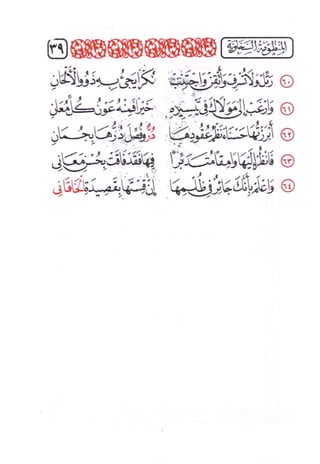 المنظومة السخاوية ٣٩
٦٠ رَتِّلْ وَلَا تُسْرِفْ وَأَتْقِنْ وَاجْتَنِبْ نُكْرًا يَجِيءُ بِهِ ذَوُو الْأَلْحَانِ
٦١ وَارْغَبْ إِلَى مَوْلَاكَ فِي تَيْسِيرِهِ خَيْرًا فَمِنْهُ عَوْنُ كُلِّ مُعَانِ
٦٢ أَبْرَزْتُهَا حَسْنَاءَ نَظْمُ عُقُودِهَا دُرٌّ وَفُصِّلَ دُرُّهَا بِجُمَانِ
٦٣ فَانْظُرْ إِلَيْهَا وَامِقًا مُتَدَبِّرًا فِيهَا فَقَدْ فَاقَتْ بِحُسْنِ مَعَانِي
٦٤ وَاعْلَمْ بِأَنَّكَ جَائِرٌ فِي ظُلْمِهَا إِنْ قِسْتَهَا بِقَصِيدَةِ الْخَاقَانِي